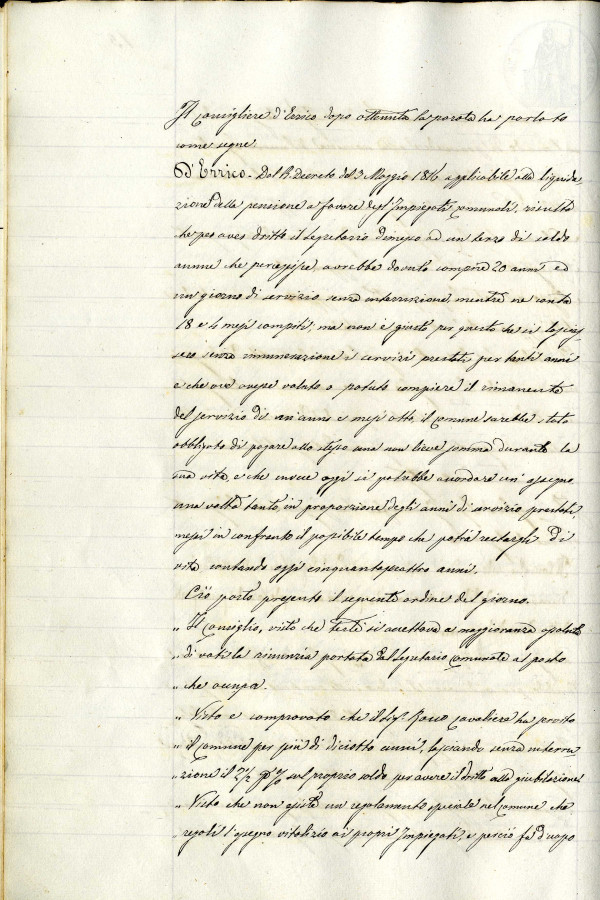 Il Consigliere d'Errico dopo ottenuta la parola ha parlato
come segue.
D'Errico - Dal R. Decreto del 3 Maggio 1816 applicabile alla liquida,
zione della pensione a favore degl'Impiegati comunali, risulta
che per aver dritto il Segretario dimesso ad un terzo di soldo
annuo che percepisse, avrebbe dovuto compiere 20 anni ed
un giorno di servizio senza interruzione, mentre ne conta
18 e 4 mesi compiti, ma non è giusto per questo che si lascias,
sero senza rimunerazione i servizi prestati per tanti anni
e che ove avesse voluto o potuto compiere il rimanente
del servizio di un'anno e mesi otto, il Comune sarebbe stato
obbligato di pagare allo stesso una non lieve somma durante la
sua vita, e che invece oggi si potrebbe accordare un assegno
una volta tanto, in proporzione degli anni di servizio prestati,
messi in confronto il possibile tempo che potrà restargli di
vita contando oggi cinquantaquattro anni.
Ciò posto presento il seguente ordine del giorno.
„ Il Consiglio, visto che testè si accettava a maggioranza assoluta
„ di voti la rinunzia portata dal Segretario Comunale al posto
„ che occupa.
„ Visto e comprovato che il Sig.r Rocco Cavaliere ha prestato
„ il Comune per più di diciotto anni, lasciando senza interru,
„ zione il 2 1/2 p% sul proprio soldo per avere il dritto alla giubilazione
„ Visto che non esiste un regolamento speciale nel Comune che
„ regoli l'assegno vitalizio ai propri Impiegati, e perciò fa d'uopo